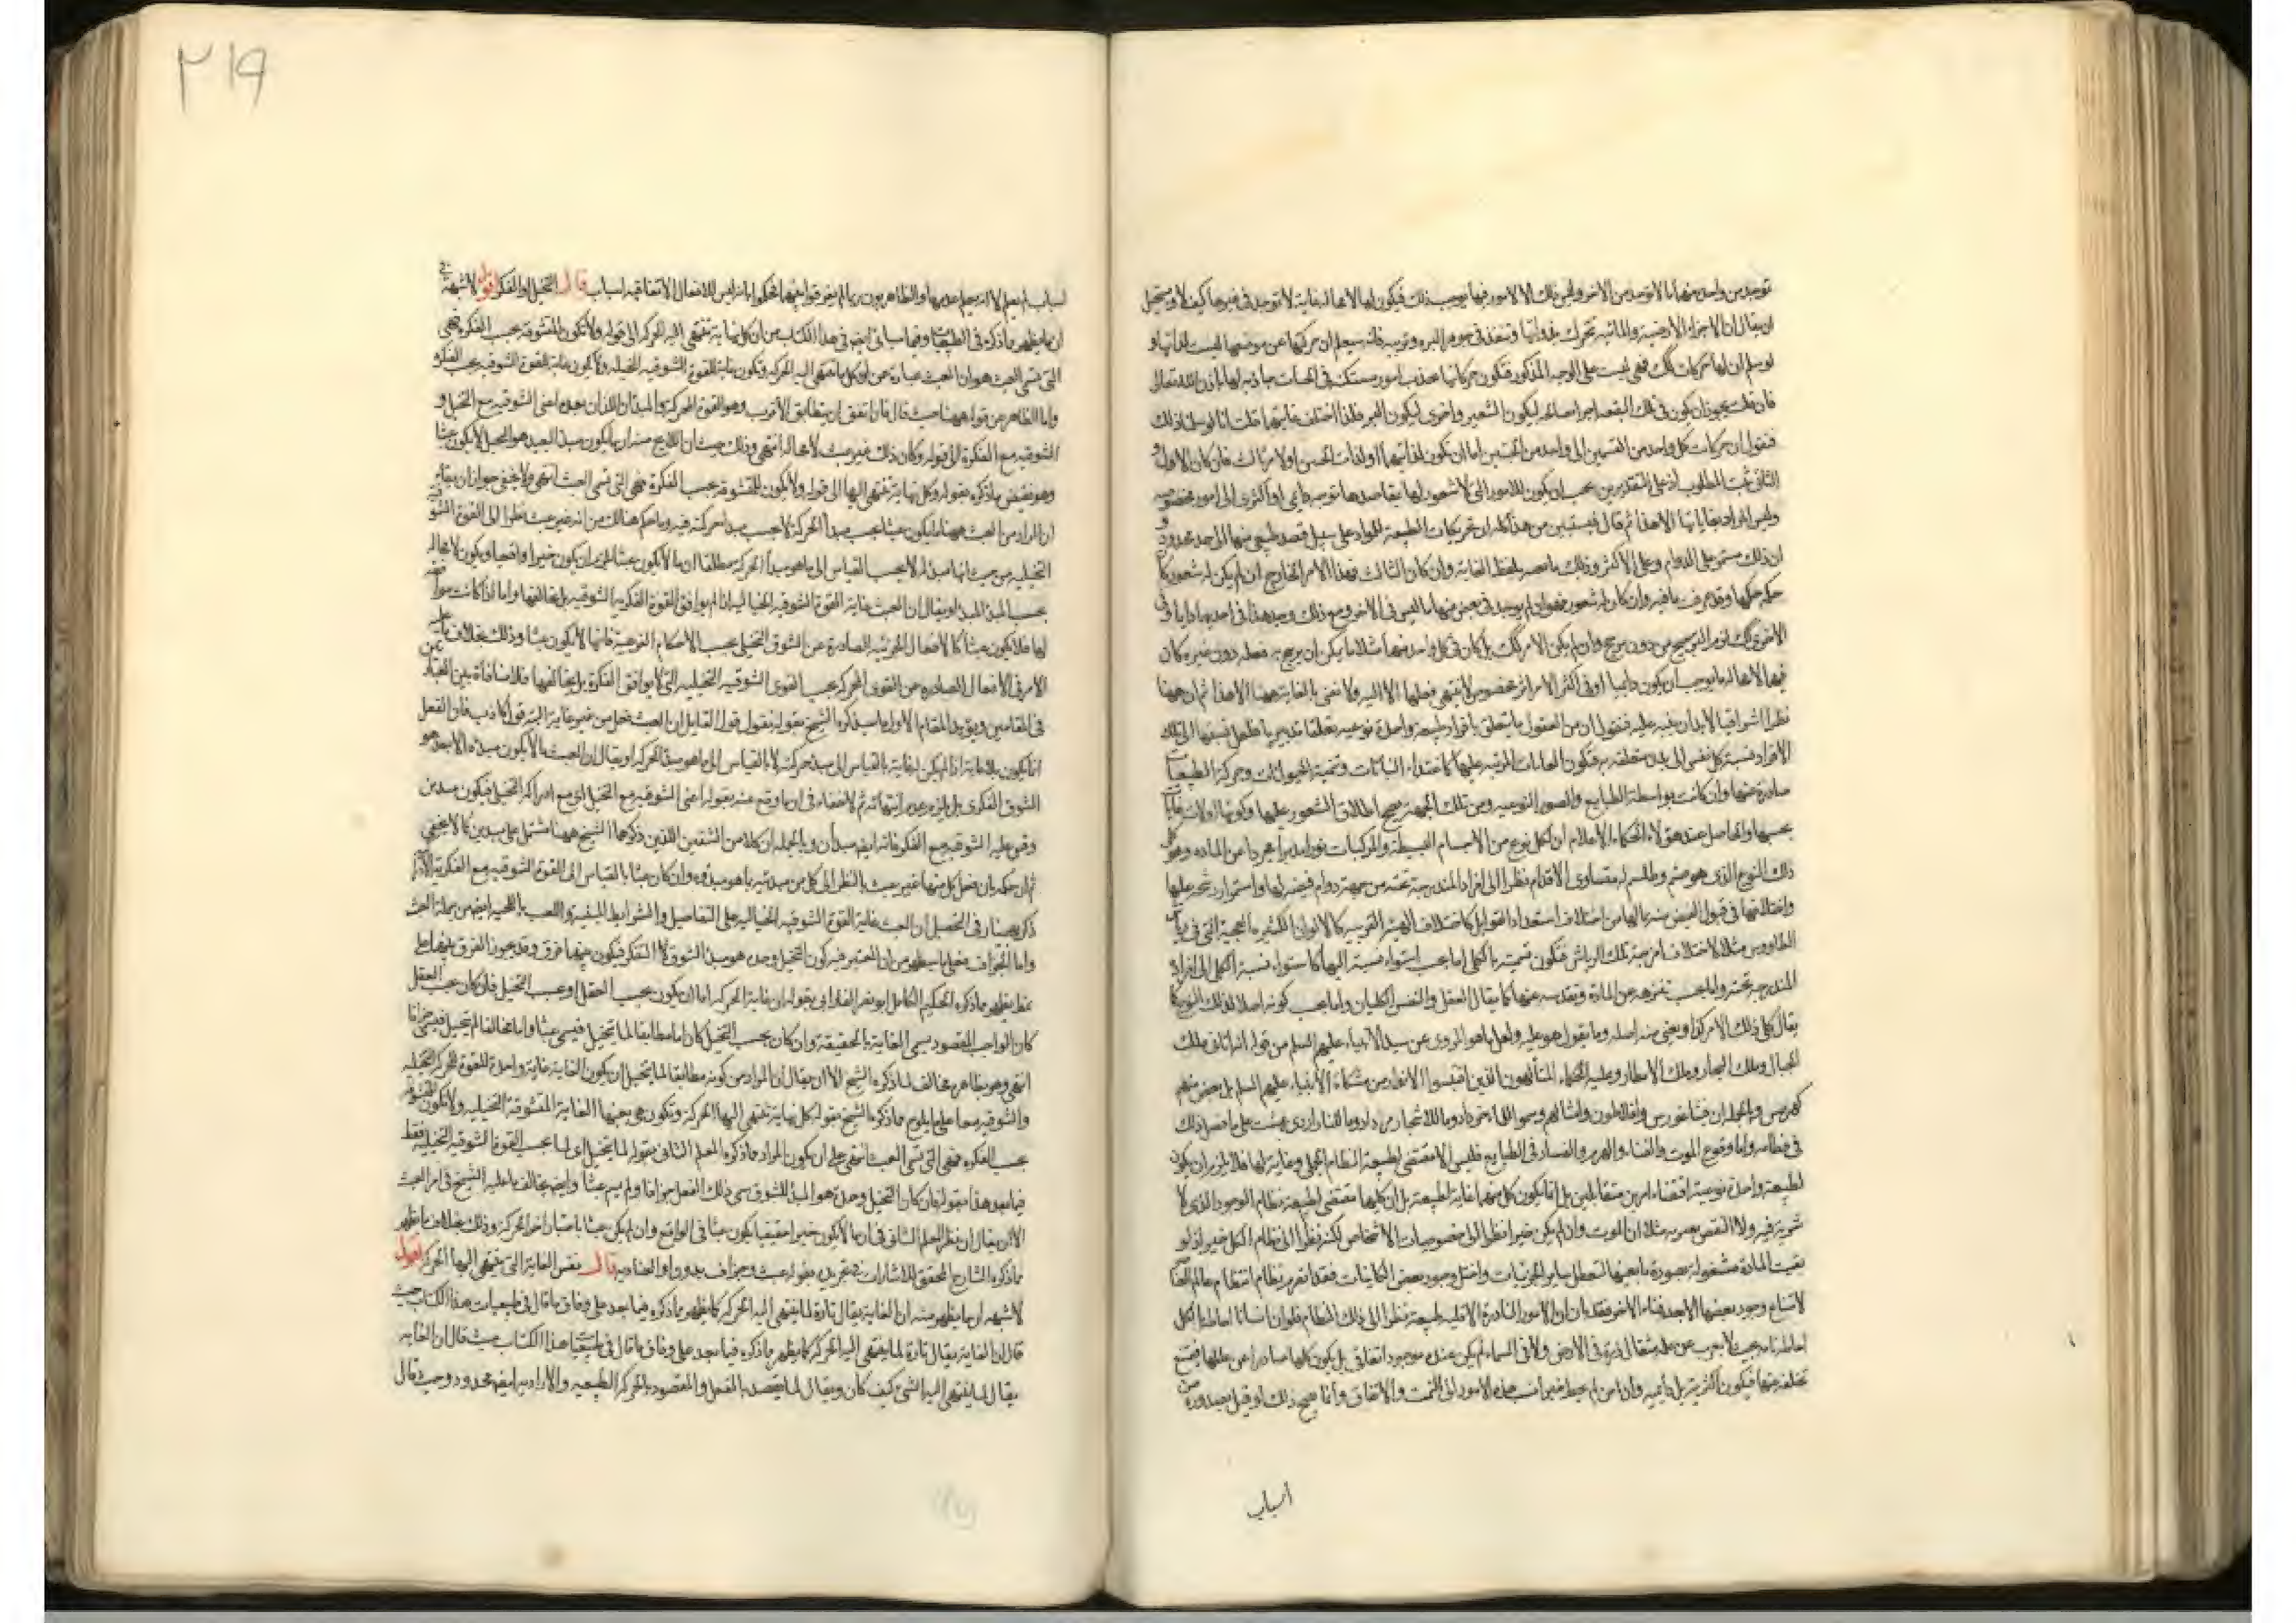 توجد من واحد منها ما لا توجد من الآخر وليس ذلك الا لامور فيها يوجب ذلك فيكون لها لا محالة غاية لا توجد في غيرها كيف لا ويستحيل
ان يقال ان الاجزاء الارضية والمائية تتحرك بذواتها وتنفذ في جوهر البره وتربيه فانه سيعلم ان حركتها عن موضعها ليست لذاتها و
لو سلم ان لها حركات تلك فهي ليست على الوجه المذكور فتكون حركاتها بجذب امور مستكنة في الحبات جاذبة لها باذن الله تعالى
فان قلت يجوز ان يكون في تلك البقعة اجزاء صالحة ليكون الشعير واخرى ليكون البر فلذا اختلف غايتها قلت انا لو سلمنا ذلك
فنقول ان حركات كل واحد من القسمين الى واحد من الحبتين اما ان تكون لذاتيهما او لذات الحبتين او لامر ثالث فان كان الاول او
الثاني ثبت المطلوب اذ على التقديرين يجب ان يكون للامور التي لا شعور لها بمقاصدها توجه دايمي او اكثري الى امور مخصوصة
وليس المراد بغاياتها الا هذا ثم قال فيستبين من هذا كله ان تحريكات الطبيعة للمواد على سبيل قصد طبيعي منها الى حد محدود و
ان ذلك مستمر على الدوام وعلى الاكثر وذلك ما نعنيه بلفظ الغاية وان كان الثالث فهذا الامر الخارج ان لم يكن له شعور كان
حكمه حكمها وقد عرف ما فيه وان كان له شعور فنقول ان لم يوجد في بعض منها ما ليس في الآخر ومع ذلك وجد هذا في احديها دايما وفي
الاخرى تلك لزم الترجيح من دون مرجح وان لم يكن الامر كك بل كان في كل واحد منها مثلا ما يمكن ان يرجح به فعله دون غيره كان
فيها لا محالة ما يوجب ان يكون دايما او في اكثر الامر اثر مخصوص لا ينتهي فعلها الا اليه ولا نعني بالغاية ههنا الا هذا ثم ان ههنا
نظرا اشراقيا لا بد ان ننبه عليه فنقول ان من العقول ما يتعلق بافراد طبيعة واحدة نوعية تعلقا تدبيريا فلعل نسبتها الى تلك
الافراد نسبة كل نفس الى بدن متعلقة به فتكون الغايات المرتبة عليها كاغتذاء النباتات وتنمية الحيوانات وحركة الطبيعيات
صادرة عنها وان كانت بواسطة الطبايع والصور النوعية ومن تلك الجهة يصح اطلاق الشعور عليها وكونها اولات غايات
بحسبها والحاصل عند هؤلاء الحكماء الاعلام ان لكل نوع من الاجسام البسيطة والمركبات نورا مدبرا مجردا من المادة وهو كلي
ذلك النوع الذي هو صنم وطلسم له متساوي الاقدام نظرا الى افراده المندرجة تحته من جهة دوام فيضه لها واستمرار شحه عليها
واختلافها في قبول الفيض منه بما لها من اختلاف استعداد القوابل كاختلاف الهيئة القريبة كالالوان الكثيرة العجيبة التي في رياش
الطاووس مثلا لاختلاف امزجة تلك الرياش فتكون تسميته بالكلي اما بحسب استواء نسبته اليها كاستواء نسبة الكلي الى افراده
المندرجة تحته واما بحسب تنزهه عن المادة وتقدسه عنها كما يقال العقل والنفس الكليان واما بحسب كونه اصلا لذلك النوع كما
يقال كلي ذلك الامر كذا ويعني به اصله وما يقول هو عليه ولعل ما هو المروي عن سيد الانبياء عليهم السلم من قوله اتاني ملك
الجبال وملك البحار وملك الامطار وعليه الحكماء المتألهون الذين اقتبسوا الانوار من مشكاة الانبياء عليهم السلم بل بعض منهم
كهرمس وبالجملة ان فيثاغورس وافلاطون وامثالهم وسموا للماء خرداد وما للاشجار مرداد وما للنار اردى بهشت على ما فصل ذلك
في مظانه واما وقوع الموت والفناء والهرم والفساد في الطبايع فليس الا مقتضى لطبيعة النظام الجملي وغاية لها فلا يلزم ان يكون
لطبيعة واحدة نوعية اقتضاء امرين متقابلين بل انما يكون كل منهما غاية لطبيعة بل ان كليهما مقتضى لطبيعة نظام الوجود الذي لا
شرية فيه ولا النقص يعتريه مثلا ان الموت وان لم يكن خيرا نظرا الى خصوصيات الاشخاص لكنه نظرا الى نظام الكل خير اذ لو
بقيت المادة مشغولة بصورة ما بعينها لتعطل ساير الجزئيات واختل وجود بعض الكاينات فقد انخرم نظام انتظام عالم العناصر
لامتناع وجود بعضها الا بعد فناء الآخر فقد بان ان الامور النادرة الاقلية طبيعية نظرا الى ذلك النظام فلو ان انسانا احاط بالكل
احاطة تامة بحيث لا يعزب عن علمه مثقال ذرة في الارض ولا في السماء لم يكن عنده موجود اتفاقي بل يكون كلها صادرا عن عللها يمتنع
تخلفه عنها فيكون اكثرية بل دايمية وان من لم يحط خبرا نسب هذه الامور الى البخت والاتفاق وانما يصح ذلك لو قيل بصدوره من
اسباب
٢١٩
اسباب لم يعلم لا انه يعلم عدمها والظاهريون ربما لم يفرقوا بينهما فحكموا بانه ليس للافعال الاتفاقية اسباب قال التخيل او الفكر اقول لا شبهة في
ان ما يظهر مما ذكره في الطبيعيات وفيما سيأتي ايضا في هذا الكتاب من ان كل غاية تنتهي اليه الحركة الى قوله ولا تكون المتشوقة بحسب الفكرة فهي
التي تسمى العبث هو ان العبث عبارة عن ان كل ما تنتهي اليه الحركة وتكون غاية للقوة الشوقية التخيلية ولا تكون غاية القوة الشوقية بحسب الفكرة و
واما الظاهر من قوله ههنا حيث قال فان اتفق ان يتطابق الاقرب وهو القوة المحركة والمبدءان اللذان بعده اعني الشوقية مع التخيل و
الشوقية مع الفكرة الى قوله وكان ذلك غير عبث لا محالة انتهى وذلك حيث ان اللايح منه ان ما يكون مبدؤه البعيد هو التخيل لا يكون عبثا
وهو نقيض ما ذكره بقوله وكل نهاية تنتهي اليها الى قوله ولا يكون المتشوقة بحسب الفكرة فهي التي تسمى العبث انتهى ولا يخفى جواز ان يقال
ان المراد من العبث ههنا ما يكون عبثا بحسب مبدأ الحركة لا بحسب مبدأ حركة فيه وما حكم هناك من انه غير عبث نظرا الى القوة الشوقية
التخيلية من حيث انها مبدأ له لا بحسب القياس الى ما هو مبدأ الحركة مطلقا ان ما لا يكون عبثا يلزم ان يكون خيرا واقعيا ويكون لا محالة
بحسب المبدأ المبدأ او يقال ان العبث غاية القوة الشوقية الخيالية اذا لم يوافق القوة الفكرية الشوقية بل خالفها واما اذا كانت موافقة
لها فلا يكون عبثا كالافعال الجزئية الصادرة عن الشوق التخيلي بحسب الاحكام النوعية فانها لا يكون عبثا وذلك بخلاف ما عليه
الامر في الافعال الصادرة عن القوى المحركة بحسب القوى الشوقية التخيلية التي لا يوافق الفكرة بل يخالفها فلا منافاة بين العبارتين
في المقامين ويؤيد المقام الاول ما سيذكره الشيخ بقوله فنقول قول القايل ان العبث فعل من غير غاية البتة قول كاذب فان الفعل
انما يكون بلا غاية اذا لم يكن له غاية بالقياس الى مبدء حركته لا بالقياس الى ما هو مبدأ الحركة او يقال ان العبث ما لا يكون مبدؤه الابعد هو
الشوق الفكري بل يلزمه عدم انتهائه ثم لا خفاء في ان ما وقع عنه بقوله اعني الشوقية مع التخيل اي مع ادراكه التخيل فيكون مبدءين
وقس عليه الشوقية مع الفكر فانه ايضا مبدءان وبالجملة ان كلا من الشقين اللذين ذكرهما الشيخ ههنا مشتمل على مبدءين كما لا يخفى
ثم ان حكمه بان فعل كل منها غير عبث بالنظر الى كل من مبدئيه بما هو مبدؤه وان كان عبثا بالقياس الى القوة الشوقية مع الفكرية الا ان ما
ذكر بهمنيار في التحصيل ان العبث غاية القوة الشوقية الخيالية على التفاصيل والشرايط المبينة واللعب باللحية ايضا من جملة العبث
واما الجزاف فعلى ما سيظهر من ان المعتبر فيه كون التخيل وحده هو مبدأ الشوق لا التفكر فيكون بينهما فرق وقد يجوز الفرق بينهما على
نمط يظهر مما ذكره الحكيم الكامل ابو نصر الفارابي بقوله ان غاية الحركة اما ان يكون بحسب العقل او بحسب التخيل فان كان بحسب العقل
كان الواجب المقصود يسمى الغاية بالحقيقة وان كان بحسب التخيل كان اما مطابقا لما تخيل فيسمى عبثا واما مخالفا لم تخيل فيسمى جزافا
انتهى وهو بظاهره مخالف لما ذكره الشيخ الا ان يقال ان المراد من كونه مطابقا لما يتخيل ان يكون الغاية غاية واحدة للقوة المحركة التخيلية
والشوقية معا على ما يلوح مما ذكره الشيخ بقوله كل نهاية تنتهي اليها الحركة وتكون هي بعينها الغاية المتشوقة التخيلية ولا تكون المتشوقة
بحسب الفكرة فهي التي تسمى العبث انتهى على ان يكون المراد مما ذكره المعلم الثاني بقوله لما يتخيل اي لما بحسب القوة الشوقية التخيلية فقط
فيما بعد هذا بقوله فان كان التخيل وحده هو المبدأ للشوق سمي ذلك الفعل جزافا ولم يسم عبثا وايضا يخالف ما عليه الشيخ في امر العبث
الا ان يقال ان نظر المعلم الثاني في ان ما لا يكون خيرا حقيقيا يكون عبثا في الواقع وان لم يكن عبثا باعتبار آخر الحركة وذلك بخلاف ما يظهر
مما ذكره الشارح المحقق للاشارات في تجريده بقوله عبث وجزاف بدون واو العنادية قال نفس الغاية التي ينتهي اليها الحركة اقول
لا شبهة ان ما يظهر منه ان الغاية يقال تارة لما ينتهي اليه الحركة كما يظهر مما ذكره فيما بعد على وفاق ما قال في طبيعيات هذا الكتاب حيث
قال ان الغاية يقال تارة لما ينتهي اليه الحركة كما يظهر مما ذكره فيما بعد على وفاق ما قال في طبيعيات هذا الكتاب حيث قال ان الغاية
يقال لما ينتهي اليه الشيء كيف كان ويقال لما يقصد بالفعل والمقصود بالحركة الطبيعية والارادية ايضا محدود وحيث قال